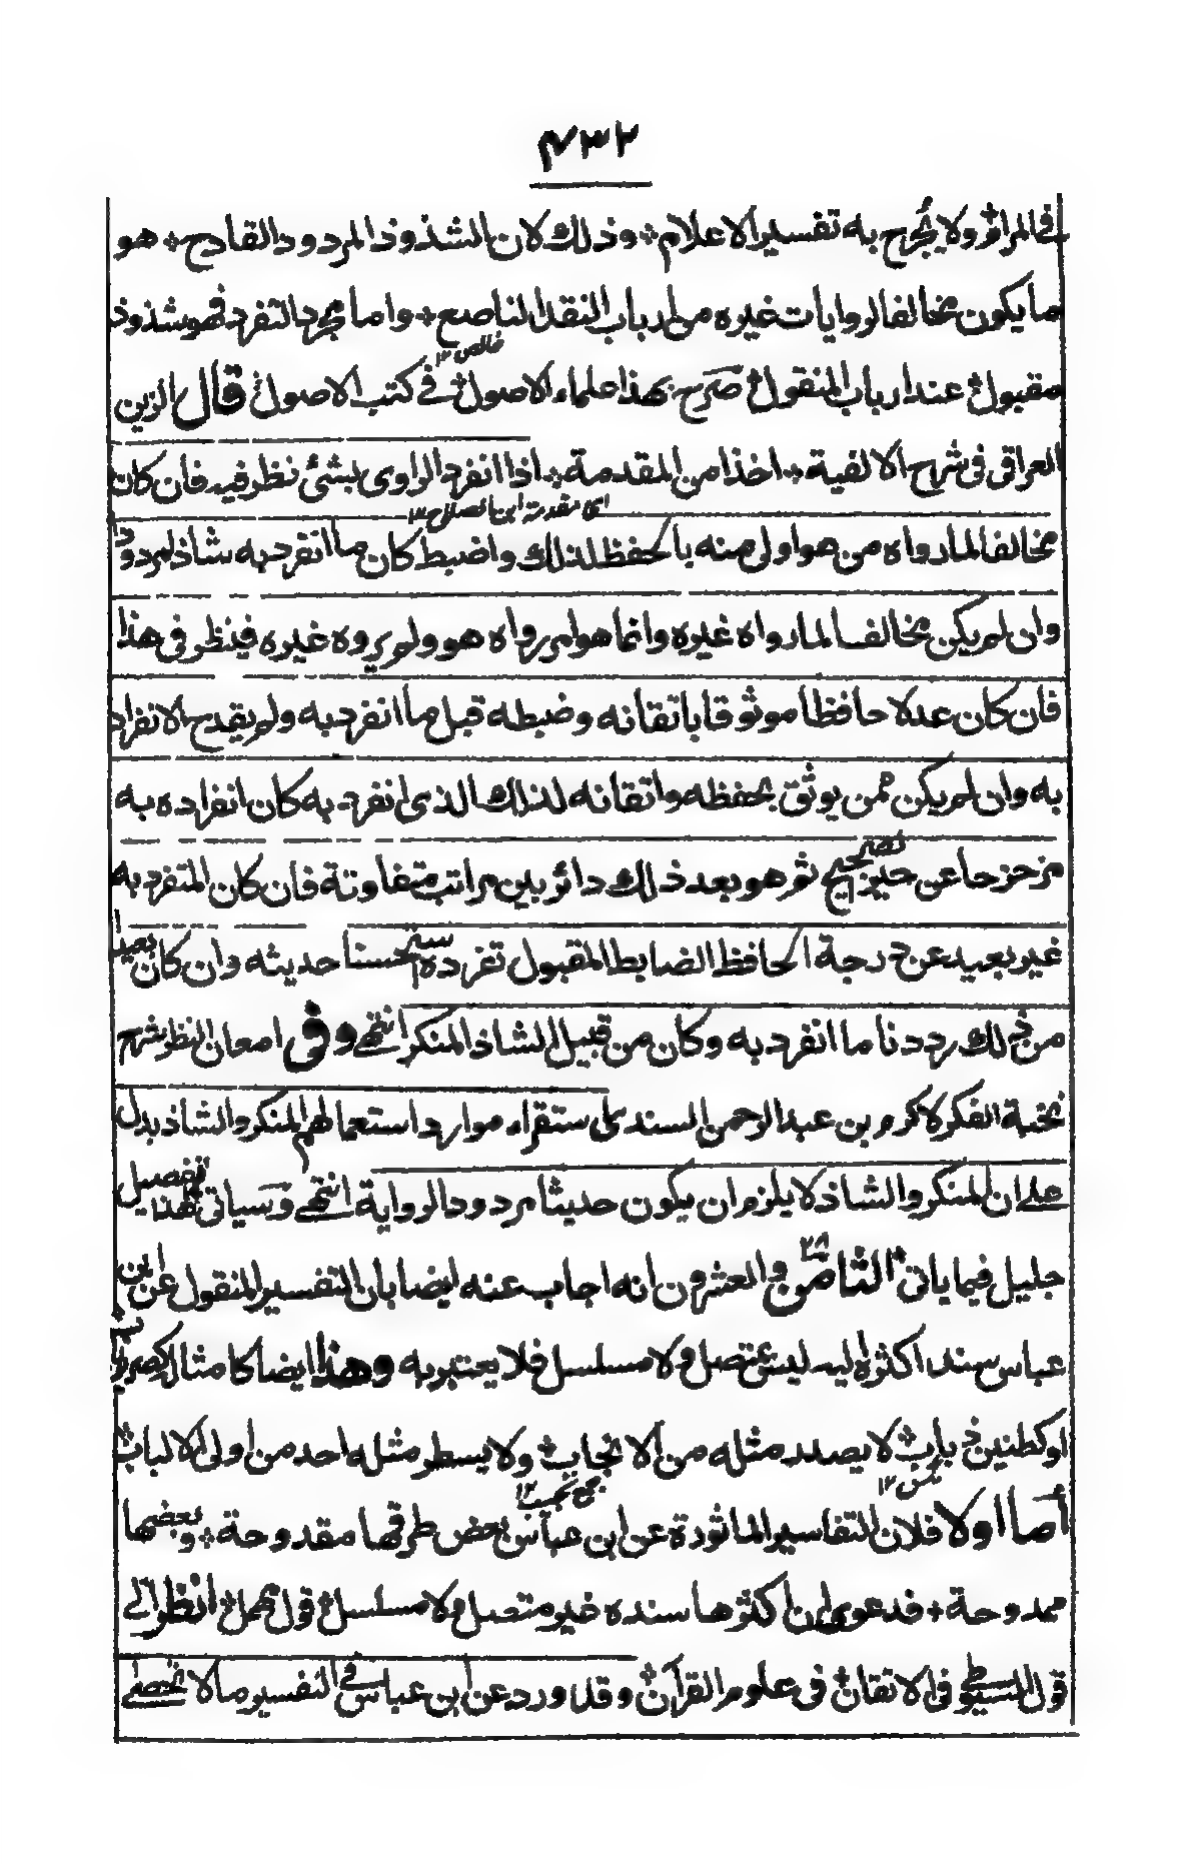 ٤٣٢
في المرام ولا يجرح به تفسير الاعلام؛ وذلك لان الشذوذ المردود القادح؛ هو
ما يكون مخالفا لروايات غيره من ارباب النقد الناصع؛ واما مجرد التفرد فهو شذوذ
خالص١٢
مقبول عند ارباب المنقول صرح بهذا علماء الاصول في كتب الاصول قال الزين
العراقي في شرح الالفية؛ اخذا من المقدمة؛ اذا انفرد الراوي بشئ نظر فيه فان كان
اي مقدمة ابن الصلاح١٢
مخالفا لما رواه من هو اولى منه بالحفظ لذلك واضبط كان ما انفرد به شاذا مردودا
وان لم يكن مخالفا لما رواه غيره وانما هو امر رواه هو ولم يروه غيره فينظر في هذا
فان كان عدلا حافظا موثوقا باتقانه وضبطه قبل ما انفرد به ولم يقدح الانفراد
به وان لم يكن ممن يوثق بحفظه واتقانه لذلك الذى انفرد به كان انفراده به
مزحزحا عن حيز الصحيح ثم هو بعد ذلك دائر بين مراتب متفاوتة فان كان المتفرد به
غير بعيد عن درجة الحافظ الضابط المقبول تفرده استحسنا حديثه وان كان بعيدا
من ذلك رددنا ما انفرد به وكان من قبيل الشاذ المنكر انتهى وفي امعان النظر شرح
نخبة الفكر لاكرم بن عبد الرحمن السندي استقراء موارد استعمالهم المنكر والشاذ يدل
على ان المنكر والشاذ لا يلزم ان يكون حديثا مردود الرواية انتهى وسياتى لهذا تفصيل
جليل فيما ياتى الثامن والعشرون ٢٨ انه اجاب عنه ايضا بان التفسير المنقول عن ابن
عباس سند اكثره اليه ليس بمتصل ولا مسلسل فلا يعتبر به وهذا ايضا كامثاله كصرير
او كطنين ذباب لا يصدر مثله من الانجاب ولا يسطر مثله احد من اولى الالباب
مگس١٢ جمع نجيب١٢
أما اولا فلان التفاسير الماثورة عن ابن عباس بعض طرقها مقدوحة؛ وبعضها
ممدوحة؛ فدعوى ان اكثرها سنده غير متصل ولا مسلسل قول مهمل انظر الى
قول السيوطي في الاتقان في علوم القرآن وقد ورد عن ابن عباس في التفسير ما لا يحصى